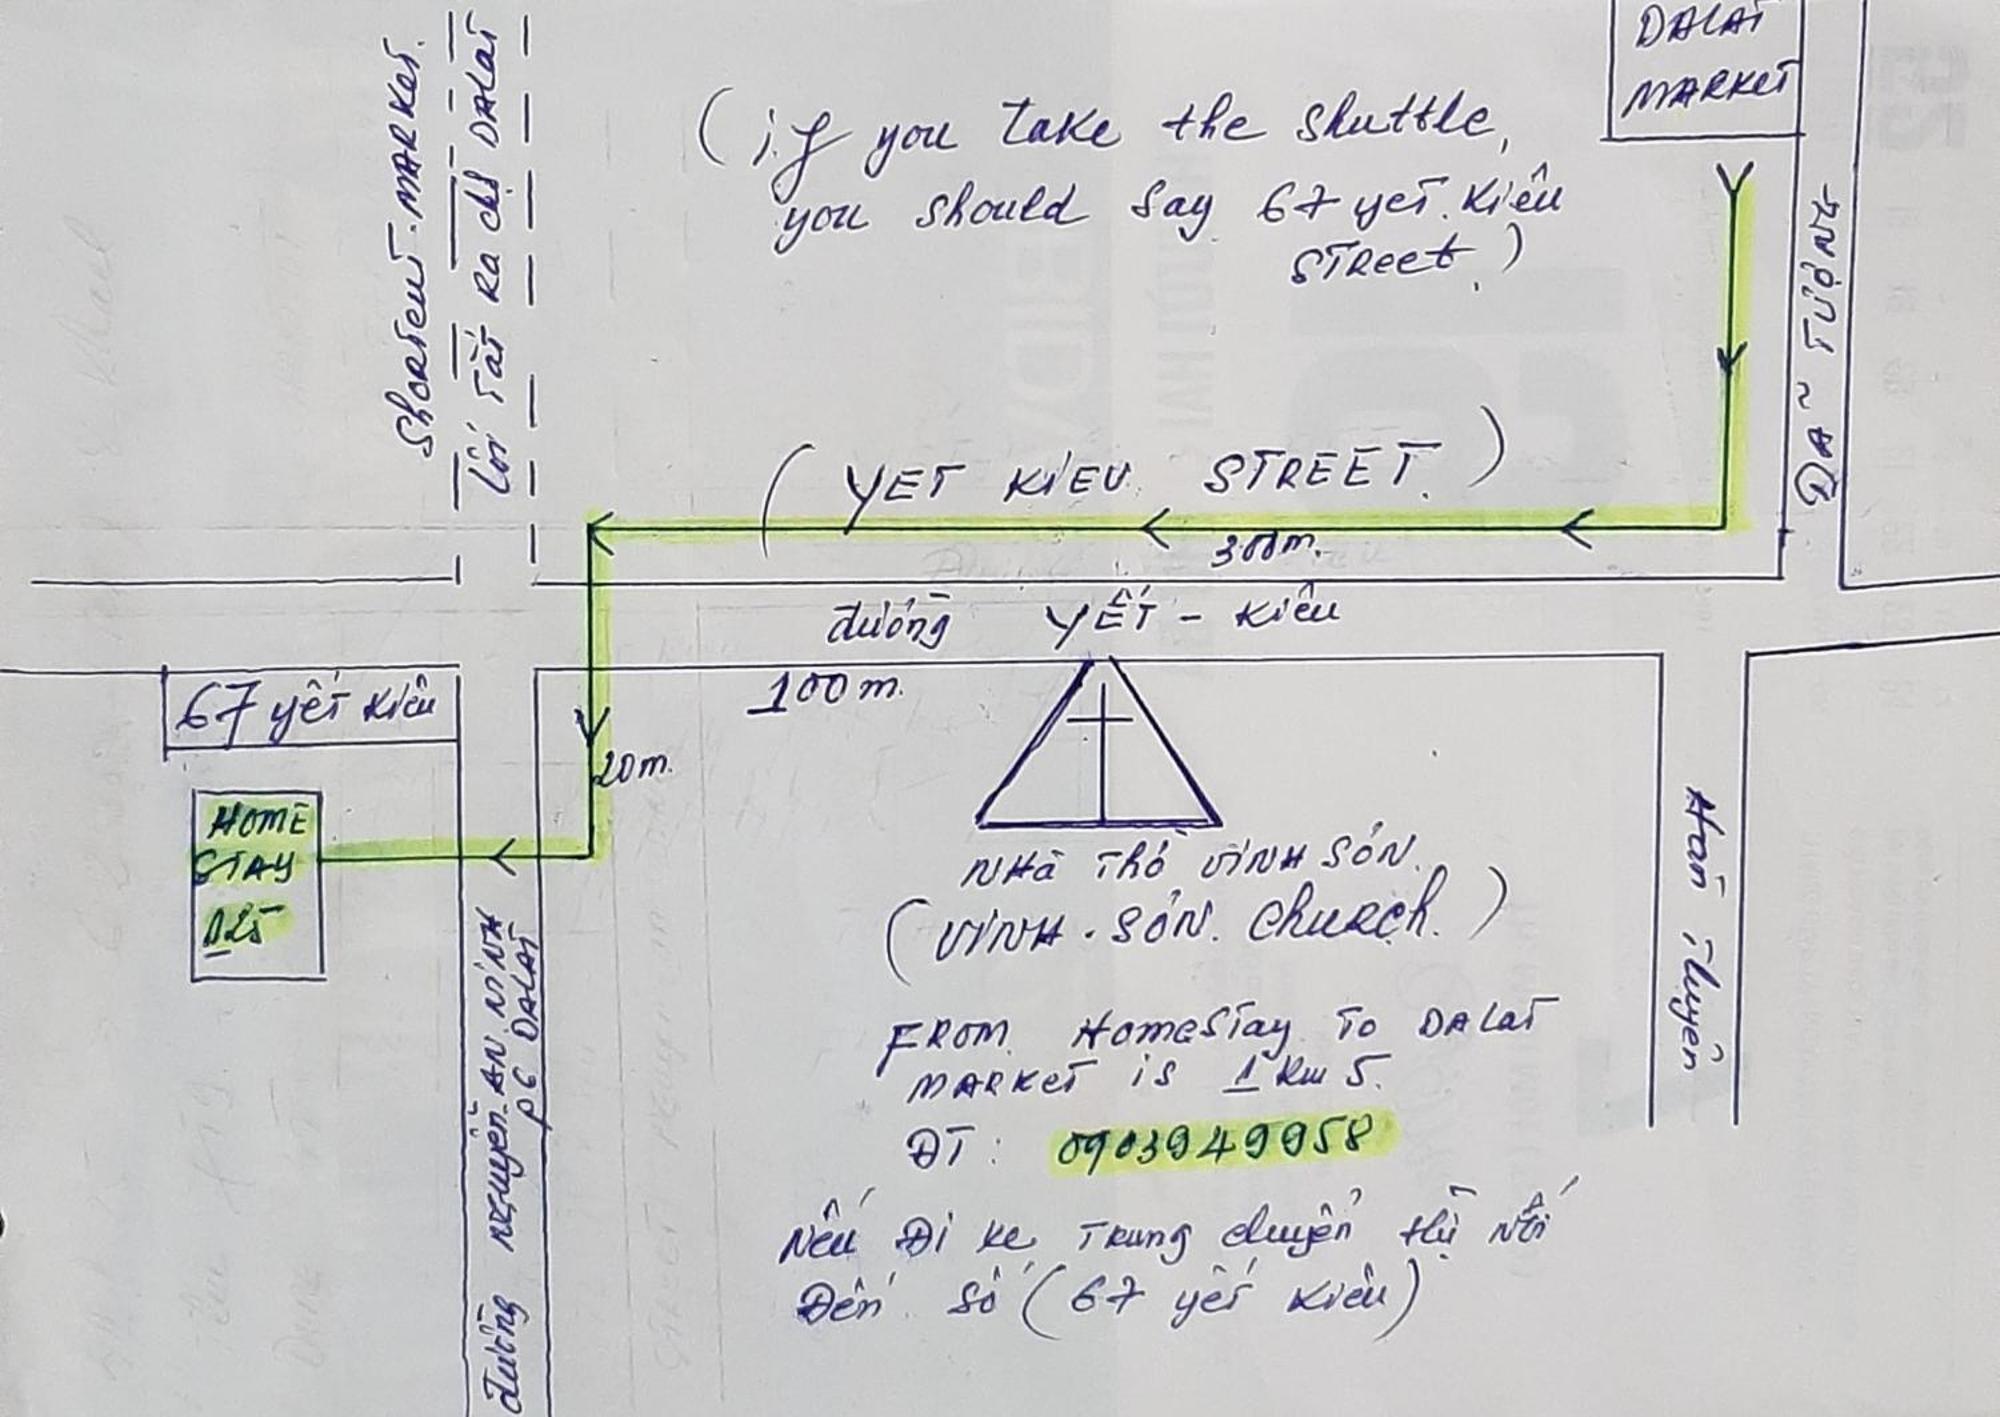 DALAT
MARKET
(if you take the shuttle,
you should say 67 yết. Kiêu
STReet.)
ShoRTcuT. MARKeT.
Lối Tắt Ra chợ DALAT
NGÃ
(YET KIEU. STREET.)
300m.
đường YẾT - Kiêu
67 yết Kiêu
100m.
20m.
HOME
STAY
NHÀ Thờ VINH SƠN.
(VINH. SƠN. ChuRch.)
Hàn Thuyên
đường NGuyễn. AN NINH
P6 DALAT
FROM. HomeSTay To DALaT
MARKeT is 1 Km 5.
ĐT: 0903949958
Nếu Đi Xe TRung chuyển thì Nói
Đến. Số (67 yết Kiêu)